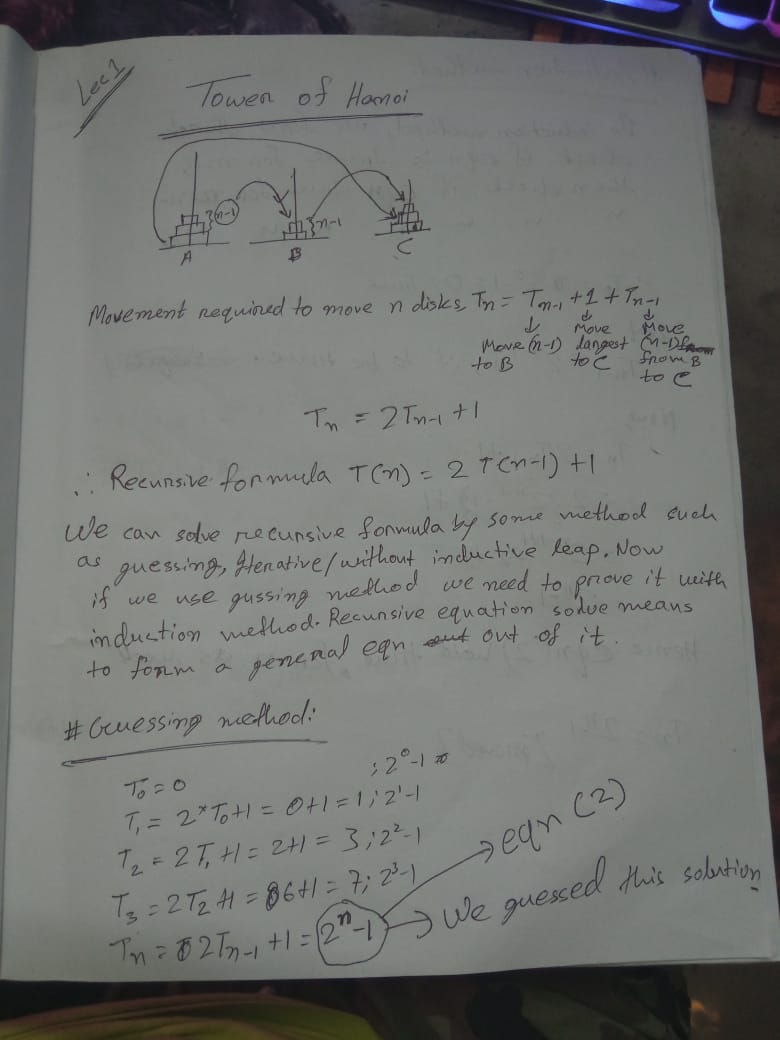 Lec 1
Tower of Hanoi
n-1
n-1
A
B
C
Movement required to move n disks, Tn = Tn-1 + 1 + Tn-1
↓ ↓ ↓
Move (n-1) to B
Move largest to C
Move (n-1) from B to C
Tn = 2Tn-1 + 1
∴ Recursive formula T(n) = 2 T(n-1) + 1
We can solve recursive formula by some method such
as guessing, Iterative/without inductive leap. Now
if we use gussing method we need to prove it with
induction method. Recursive equation solve means
to form a general eqn out of it.
# Guessing method:
T0 = 0 ; 2^0-1
T1 = 2*T0+1 = 0+1 = 1 ; 2^1-1
T2 = 2T1+1 = 2+1 = 3 ; 2^2-1
T3 = 2T2+1 = 6+1 = 7 ; 2^3-1
Tn = 2Tn-1 + 1 = 2^n-1
→ eqn (2)
→ We guessed this solution